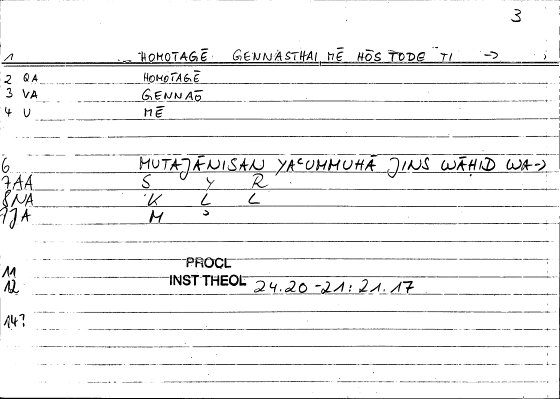 3
1 ... HOMOTAGĒ GENNASTHAI MĒ HŌS TODE TI →
2 QA HOMOTAGĒ
3 VA GENNAŌ
4 U MĒ
6 MUTAJĀNISAN YAʿUMMUHĀ JINS WĀḤID WA→
7AA S Y R
8NA K L L
9JA M ʾ
11
PROCL
INST THEOL 24.20-21: 21.17
12
14?